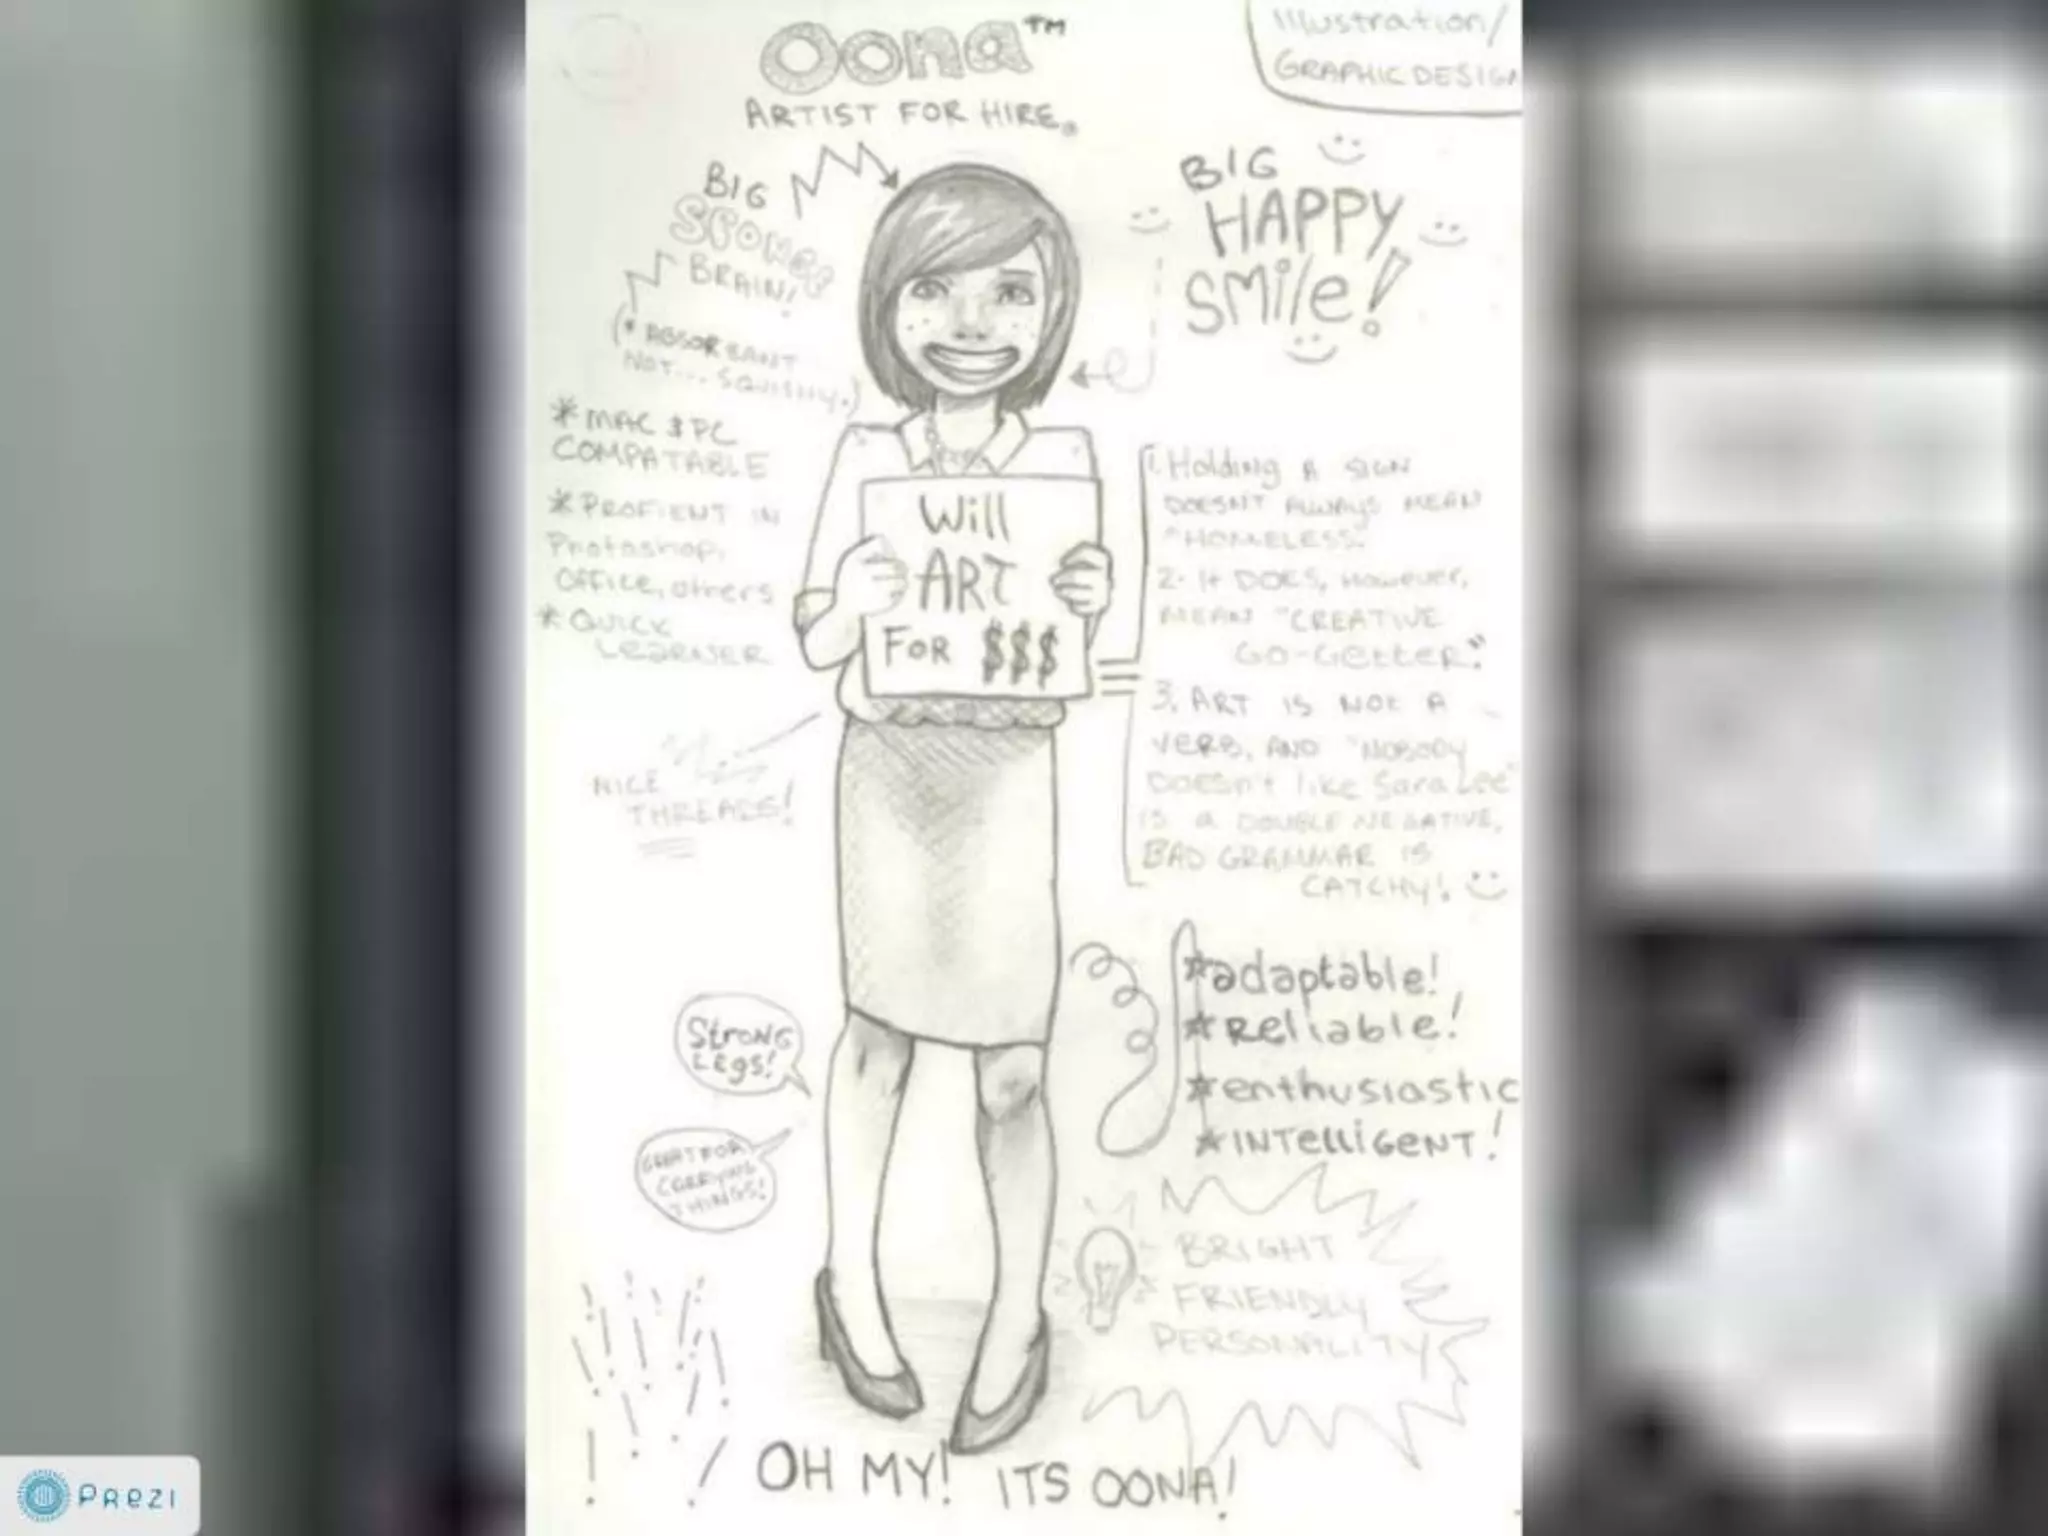 Oona™
ARTIST FOR HIRE.
Illustration/
GRAPHIC DESIGN
BIG
SPONGEY
BRAIN!
(* ABSORBANT
NOT... SQUISHY.)
BIG
HAPPY
SMile!
* MAC & PC
COMPATABLE
* PROFIENT IN
Photoshop,
OFFice, others
* QUICK
LEARNER
Will
ART
FOR $$$
1. Holding A SIGN
DOESNT ALWAYS MEAN
"HOMELESS."
2. It DOES, However,
MEAN "CREATIVE
GO-GETTER."
3. ART IS NOt A
VERB, AND "NOBODY
DOESn't like Sara Lee"
IS a DOUBLE NEGATIVE,
BAD GRAMMAR IS
CATCHY!
NICE
THREADS!
StrONG
LEgs!
GREAT FOR
CARRYING
THINGS!
*adaptable!
*Reliable!
*enthusiastic
*INTelliGENT!
BRIGHT
FRIENDLY
PERSONALITY
OH MY! ITS OONA!
PREZI